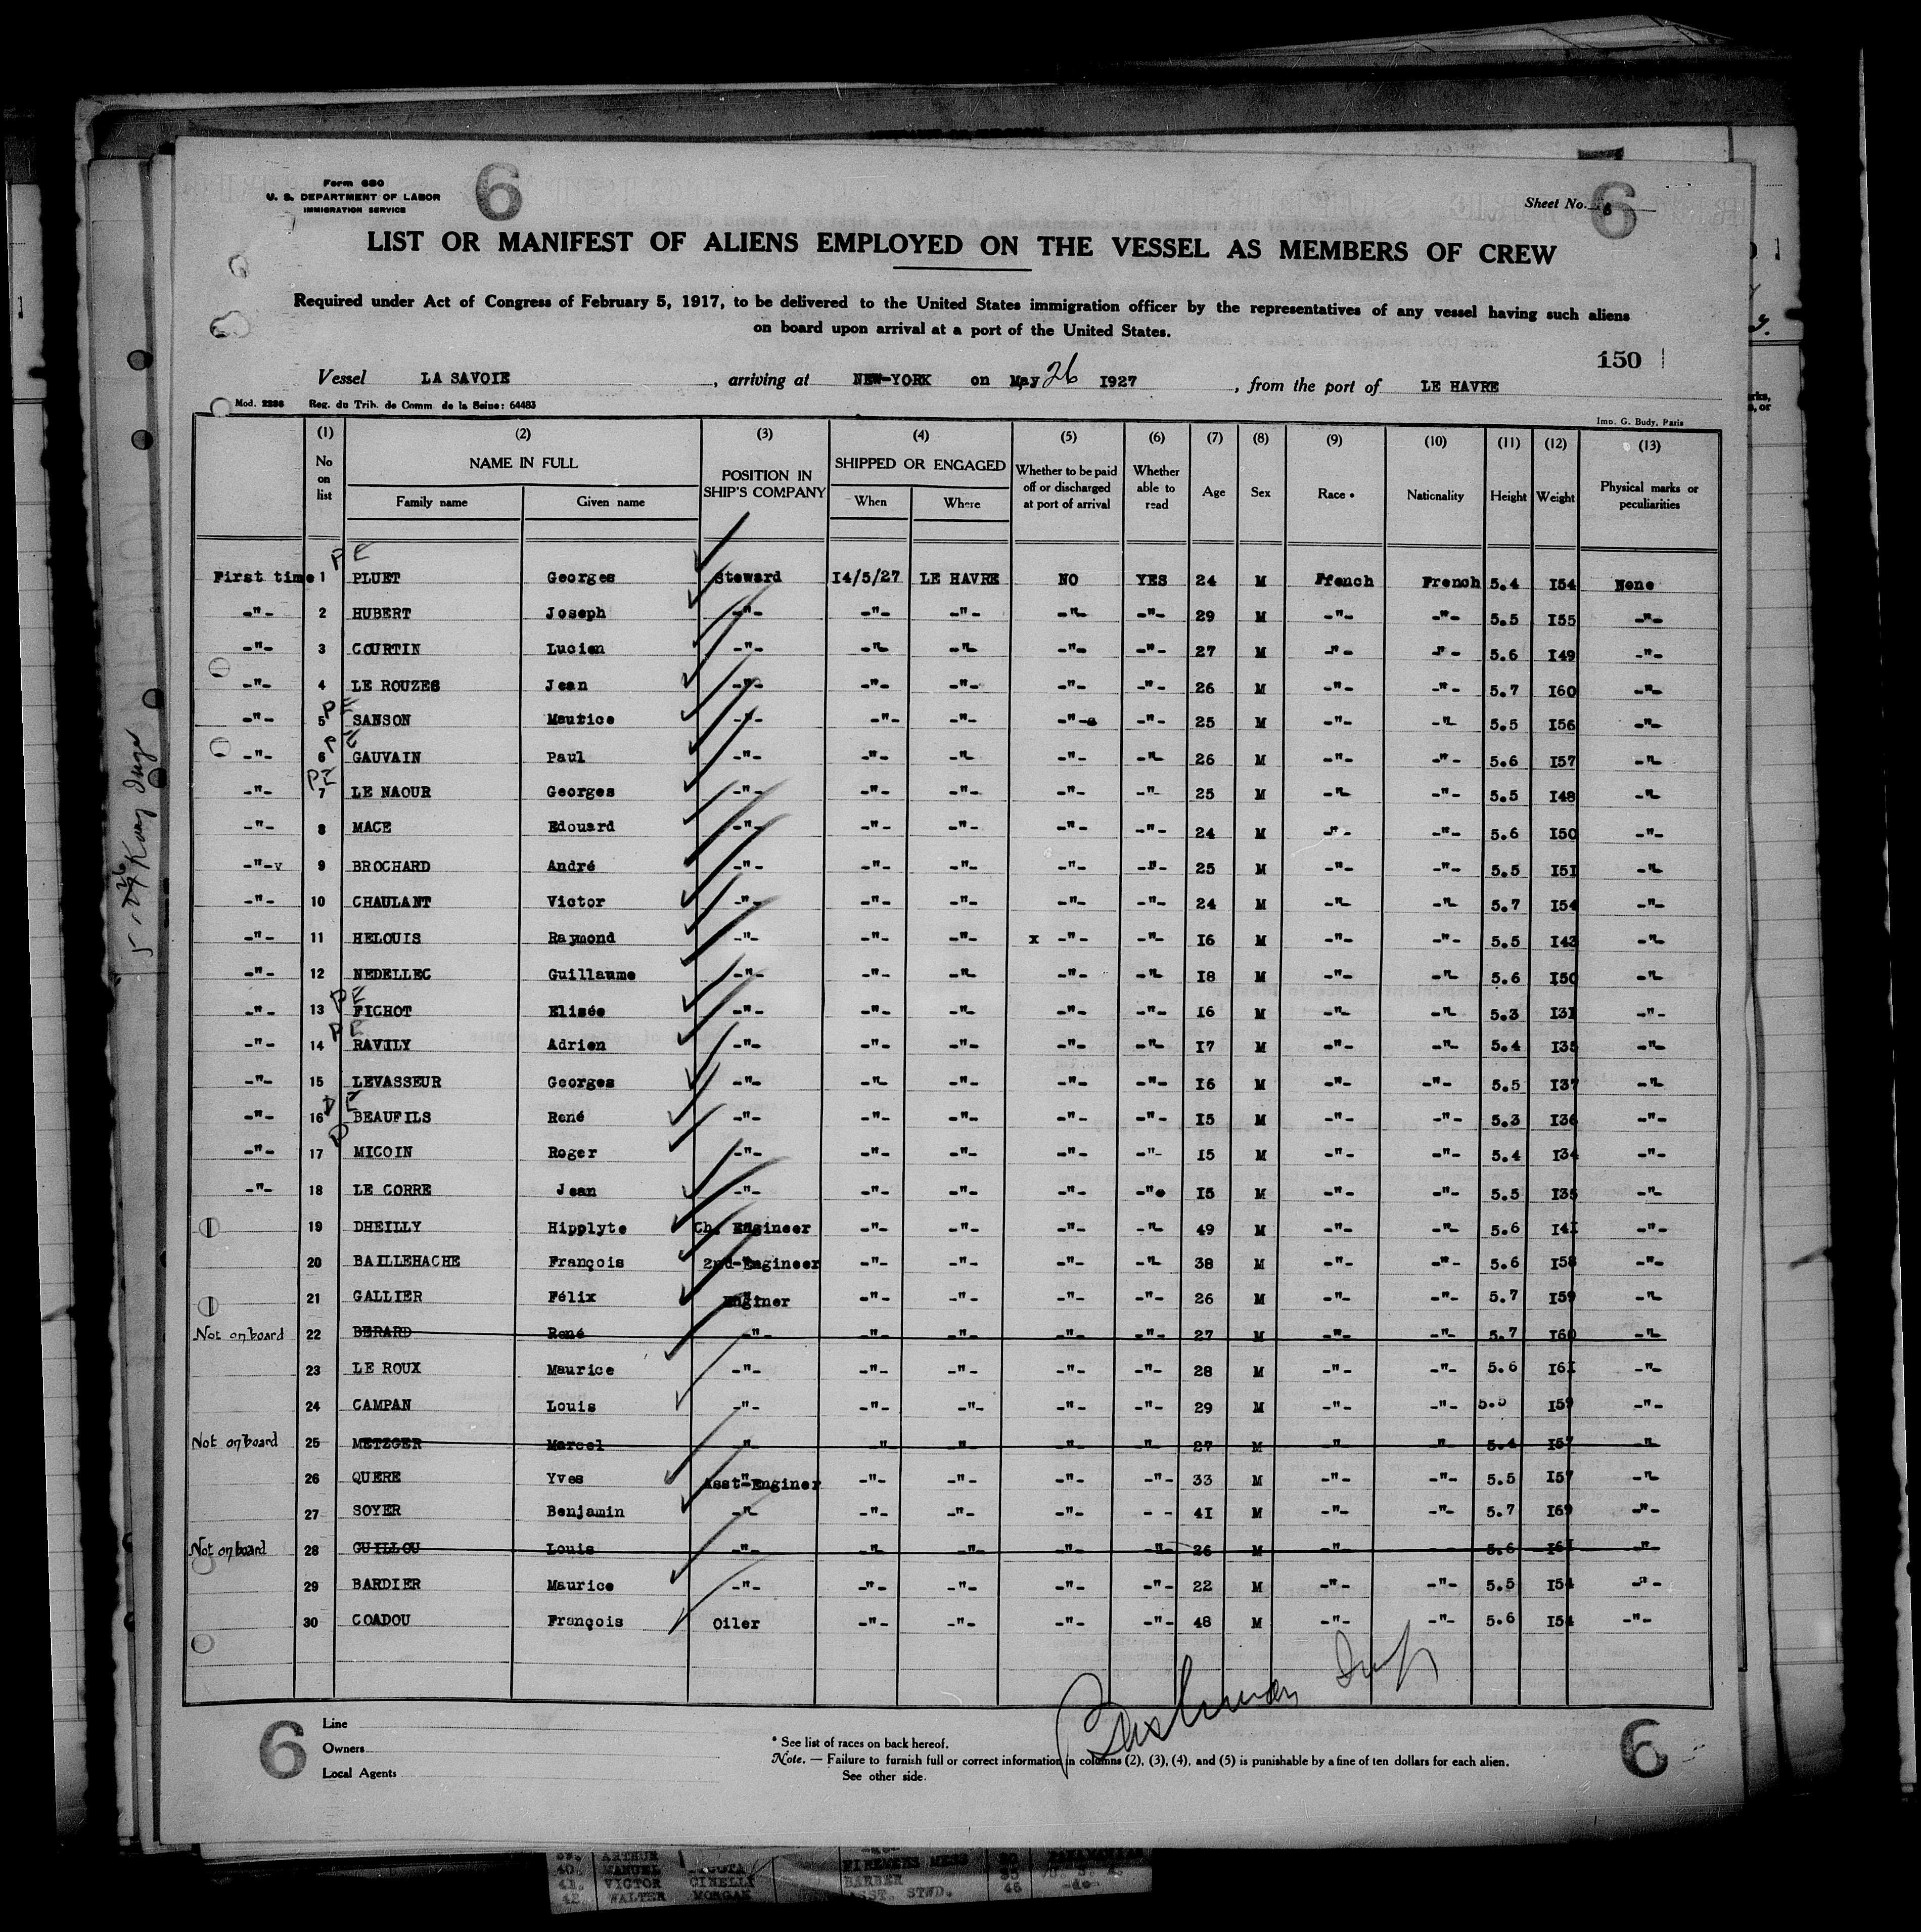 Form 680
U. S. DEPARTMENT OF LABOR
IMMIGRATION SERVICE
6
Sheet No. 6
6
LIST OR MANIFEST OF ALIENS EMPLOYED ON THE VESSEL AS MEMBERS OF CREW
Required under Act of Congress of February 5, 1917, to be delivered to the United States immigration officer by the representatives of any vessel having such aliens
on board upon arrival at a port of the United States.
150
Vessel LA SAVOIE, arriving at NEW-YORK on May 26 1927, from the port of LE HAVRE
Mod. 2286 Reg. du Trib. de Comm. de la Seine: 64483
Imp. G. Budy, Paris
(1) (2) (3) (4) (5) (6) (7) (8) (9) (10) (11) (12) (13)
No on list NAME IN FULL POSITION IN SHIP'S COMPANY SHIPPED OR ENGAGED Whether to be paid off or discharged at port of arrival Whether able to read Age Sex Race * Nationality Height Weight Physical marks or peculiarities
Family name Given name When Where
First time 1 PE PLUET Georges Steward 14/5/27 LE HAVRE NO YES 24 M Ffench French 5.4 I54 None
-"- 2 HUBERT Joseph -"- -"- -"- -"- -"- 29 M -"- -"- 5.5 I55 -"-
-"- 3 COURTIN Lucien -"- -"- -"- -"- -"- 27 M -"- -"- 5.6 I49 -"-
-"- 4 LE ROUZES Jean -"- -"- -"- -"- -"- 26 M -"- -"- 5.7 I60 -"-
-"- 5 PE SANSON Maurice -"- -"- -"- -"- -"- 25 M -"- -"- 5.5 I56 -"-
-"- 6 PE GAUVAIN Paul -"- -"- -"- -"- -"- 26 M -"- -"- 5.6 I57 -"-
-"- 7 PE LE NAOUR Georges -"- -"- -"- -"- -"- 25 M -"- -"- 5.5 I48 -"-
-"- 8 MACE Edouard -"- -"- -"- -"- -"- 24 M -"- -"- 5.6 I50 -"-
-"-v 9 BROCHARD André -"- -"- -"- -"- -"- 25 M -"- -"- 5.5 I51 -"-
-"- 10 CHAULANT Victor -"- -"- -"- -"- -"- 24 M -"- -"- 5.7 I54 -"-
-"- 11 HELOUIS Raymond -"- -"- -"- x -"- -"- I6 M -"- -"- 5.5 I43 -"-
-"- 12 NEDELLEC Guillaume -"- -"- -"- -"- -"- I8 M -"- -"- 5.6 I50 -"-
-"- 13 PE FICHOT Elisée -"- -"- -"- -"- -"- I6 M -"- -"- 5.3 I3I -"-
-"- 14 PE RAVILY Adrien -"- -"- -"- -"- -"- I7 M -"- -"- 5.4 I35 -"-
-"- 15 LEVASSEUR Georges -"- -"- -"- -"- -"- I6 M -"- -"- 5.5 I37 -"-
-"- 16 PE BEAUFILS René -"- -"- -"- -"- -"- I5 M -"- -"- 5.3 I36 -"-
-"- 17 P MICOIN Roger -"- -"- -"- -"- -"- I5 M -"- -"- 5.4 I34 -"-
-"- 18 LE CORRE Jean -"- -"- -"- -"- -"- I5 M -"- -"- 5.5 I35 -"-
19 DHEILLY Hipplyte Ch. Engineer -"- -"- -"- -"- 49 M -"- -"- 5.6 I4I -"-
20 BAILLEHACHE François 2nd-Engineer -"- -"- -"- -"- 38 M -"- -"- 5.6 I58 -"-
21 GALLIER Félix Enginer -"- -"- -"- -"- 26 M -"- -"- 5.7 I59 -"-
Not on board 22 BERARD René -"- -"- -"- -"- -"- 27 M -"- -"- 5.7 I60 -"-
23 LE ROUX Maurice -"- -"- -"- -"- -"- 28 M -"- -"- 5.6 I6I -"-
24 CAMPAN Louis -"- -"- -"- -"- -"- 29 M -"- -"- 5.5 I59 -"-
Not on board 25 METZGER Marcel -"- -"- -"- -"- -"- 27 M -"- -"- 5.4 I57 -"-
26 QUERE Yves Asst-Enginer -"- -"- -"- -"- 33 M -"- -"- 5.5 I57 -"-
27 SOYER Benjamin -"- -"- -"- -"- - - 4I M -"- -"- 5.7 I69 -"-
Not on board 28 GUILLOU Louis -"- -"- -"- -"- -"- 26 M -"- 5.6 I6I -"-
29 BARDIER Maurice -"- -"- -"- -"- -"- 22 M -"- -"- 5.5 I54 -"-
30 COADOU François Oiler -"- -"- -"- -"- 48 M -"- -"- 5.6 I54 -"-
6
Line
Owners
Local Agents
* See list of races on back hereof.
Note. — Failure to furnish full or correct information in columns (2), (3), (4), and (5) is punishable by a fine of ten dollars for each alien.
See other side.
6
ARTHUR
40. MANUEL FIREMENS MESS
41. VICTOR CINELLI BARBER
42. WALTER MORGAN ASST. STWD. 45